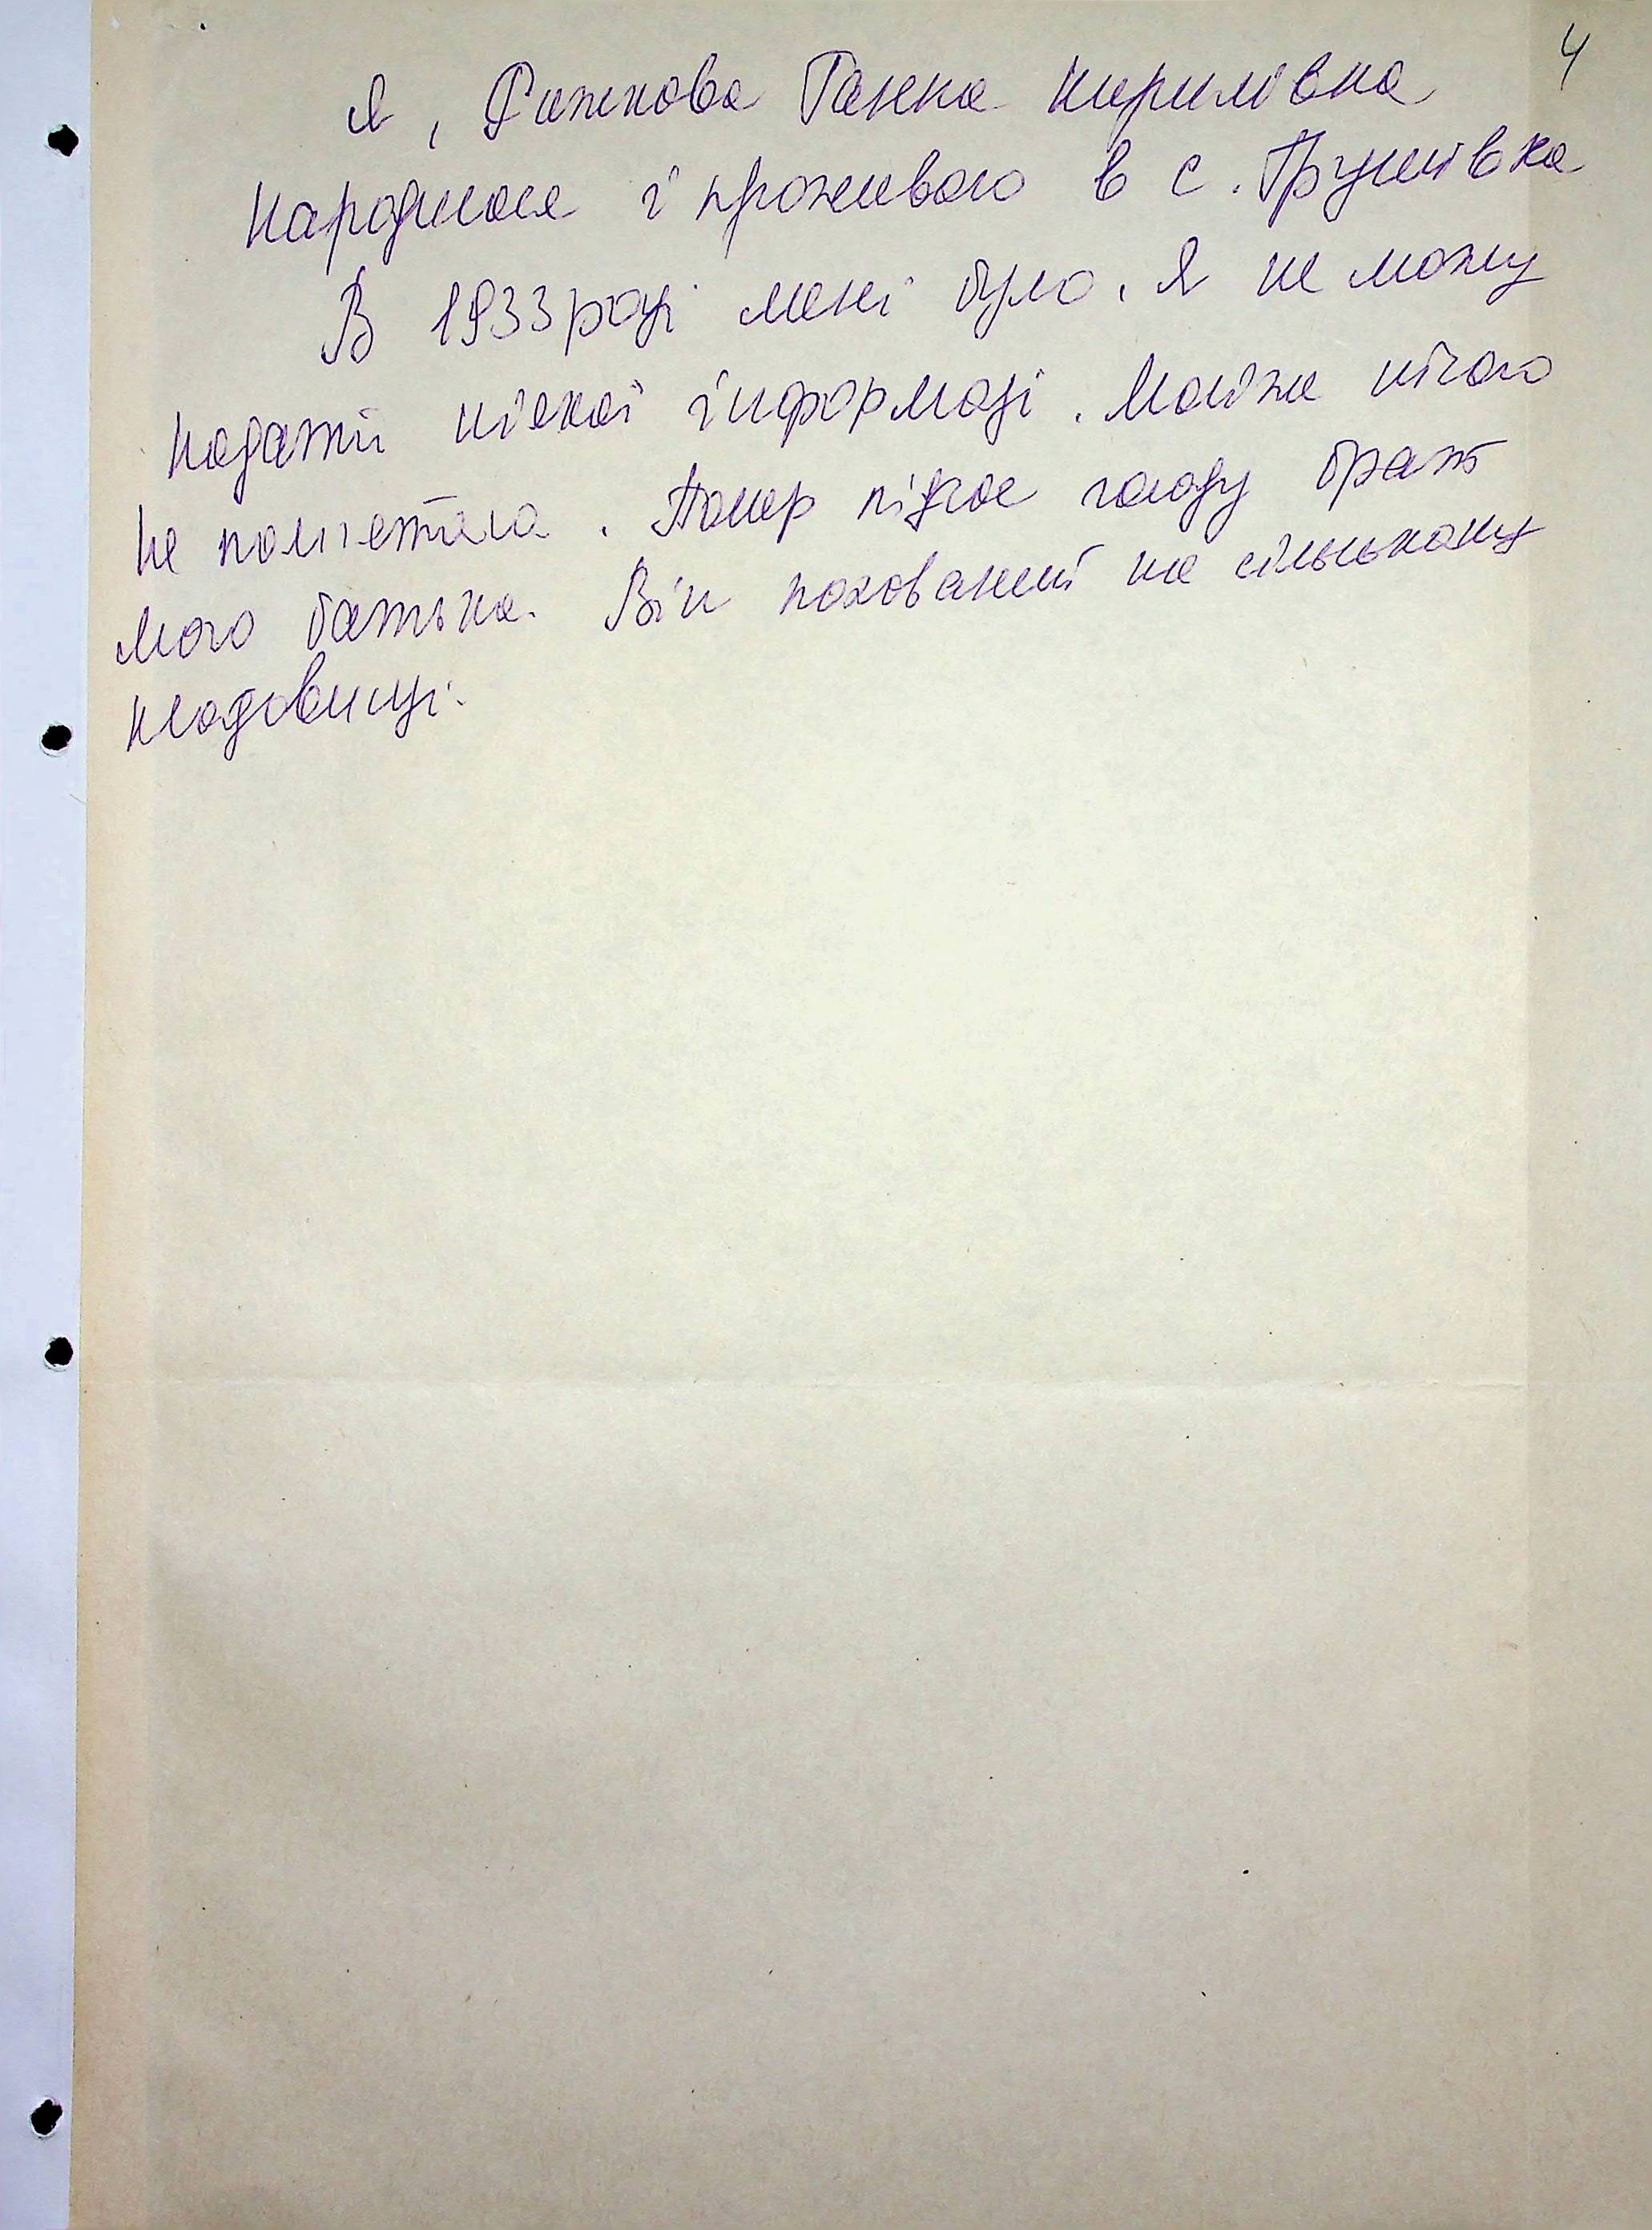 4
Я, Рижкова Ганна Кирилівна
народилася і проживаю в с. Грушівка
В 1933 році мені було. Я не можу
надати ніякої інформаці. Майже нічого
не памʼятала. Помер підчас голоду брат
мого батька. Він похований на сільському
кладовищі.